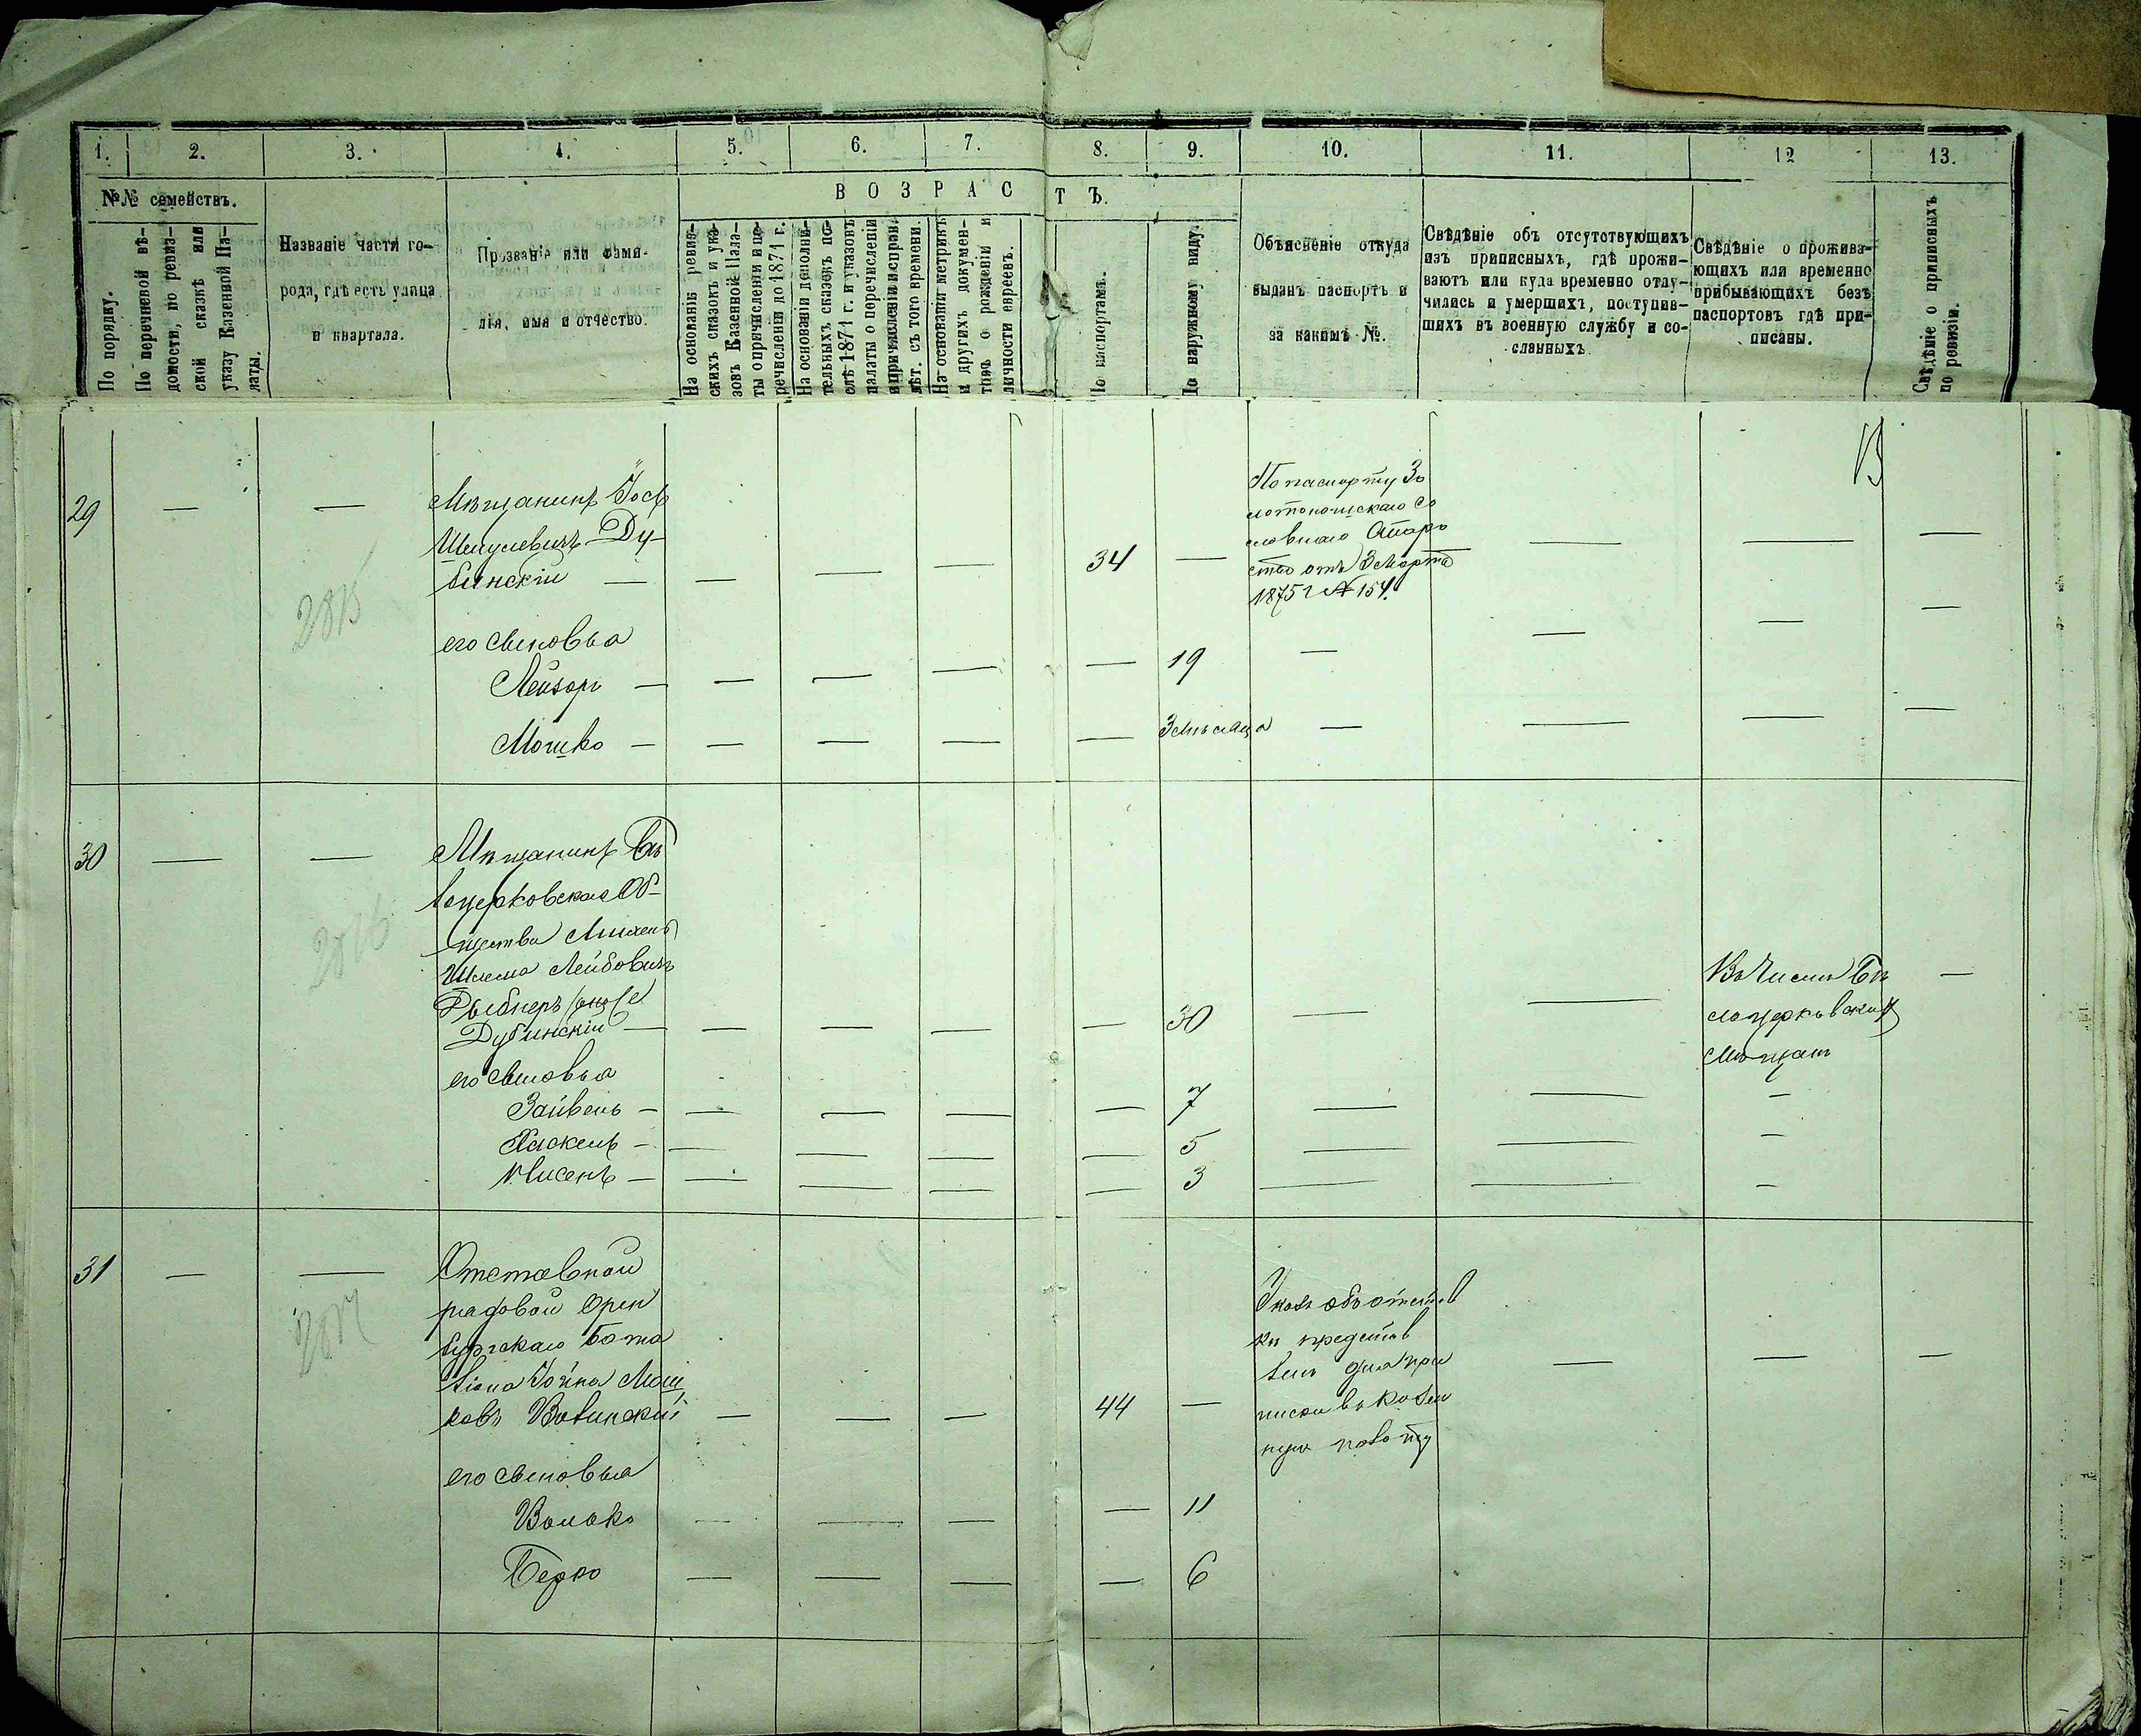 1. 2. 3. 4. 5. 6. 7. 8. 9. 10. 11. 12 13.
№№ семействъ.
ВОЗРАСТЪ.
По порядку.
По перечневой вѣ-
домости, по ревиз-
ской сказкѣ или
указу Казенной Па-
латы.
Названіе части го-
рода, гдѣ есть улица
и квартала.
Прозваніе или фами-
лія, имя и отчество.
На основаніи ревиз-
скихъ сказокъ и ука-
зовъ Казенной Пала-
ты о причисленіи и пе-
речисленіи до 1871 г.
На основаніи дополни-
тельныхъ сказокъ по-
слѣ 1871 г. и указовъ
палаты о перечисленіи
и причисленіи и справ.
лѣт. съ того времени.
На основаніи метрикъ
и другихъ докумен-
товъ о рожденіи и
личности евреевъ.
По паспортамъ.
По наружному виду.
Объясненіе откуда
выданъ паспортъ и
за какимъ №.
Свѣдѣніе объ отсутствующихъ
изъ приписныхъ, гдѣ прожи-
ваютъ или куда временно отлу-
чились и умершихъ, поступив-
шихъ въ военную службу и со-
сланныхъ
Свѣдѣніе о прожива-
ющихъ или временно
прибывающихъ безъ
паспортовъ гдѣ при-
писаны.
Свѣдѣніе о приписныхъ
по ревизіи.
29 — — Мѣщанинъ Іось
Шмулевичъ Ду-
бинскій — — — — 34 — — — —
По паспорту Зо
лотоношскаго Со
словнаго Старо
ства отъ 3 Марта
1875 г № 154.
2815
его сыновья
Лейзоръ — — — — — 19 — — — —
Мошко — — — — — 3 мѣсяца — — — —
30 — — Мѣщанинъ Бѣ
лоцерковскаго Об-
щества
Шлема Лейбовичъ
Дубинскій — — — — — 30 — — —
Въ числѣ Бѣ
лоцерковскихъ
Мѣщанъ
2816
его сыновья
Зайвель — — — — — 7 — — —
Хаскель — — — — — 5 — — —
Нисенъ — — — — — 3 — — —
31 — — Отставной
рядовой Орен
бургскаго бата
ліона Іойна Мош
ковъ — — — 44 — — — —
Указъ объ отстав
кѣ представ
ленъ для при
писки в Казен
ную палату
2817
его сыновья
Волько — — — — 11
Берко — — — — 6